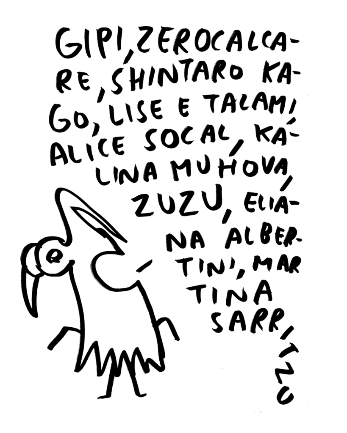 GIPI, ZEROCALCA-
RE, SHINTARO KA-
GO, LISE E TALAMI,
ALICE SOCAL, KA-
LINA MUHOVA,
ZUZU, ELIA-
NA ALBER-
TINI, MAR
TINA
SARRITZU